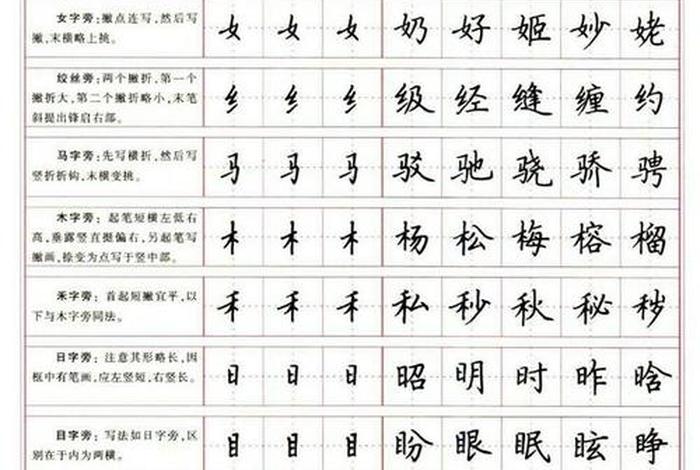 女字旁：撇点连写，然后写
撇，末横略上挑。
女 女 女 奶 好 姬 妙 姥
绞丝旁：两个撇折，第一个
撇折大，第二个撇折略小，末笔
斜提出锋启右部。
纟 纟 纟 级 经 缝 缠 约
马字旁：先写横折，然后写
竖折折钩，末横变挑。
马 马 马 驳 驰 骁 骄 骋
木字旁：起笔短横左低右
高，垂露竖直挺偏右，另起笔写
撇画，捺变为点写于竖中部。
木 木 木 杨 松 梅 榕 榴
禾字旁：首起短撇宜平，以
下与木字旁同法。
禾 禾 禾 私 秒 秋 秘 秽
日字旁：注意其形略长，因
框中有笔画，应左竖短，右竖长。
日 日 日 昭 明 时 昨 晗
目字旁：写法如日字旁，区
别在于内为两横。
目 目 目 盼 眼 眠 眩 睁